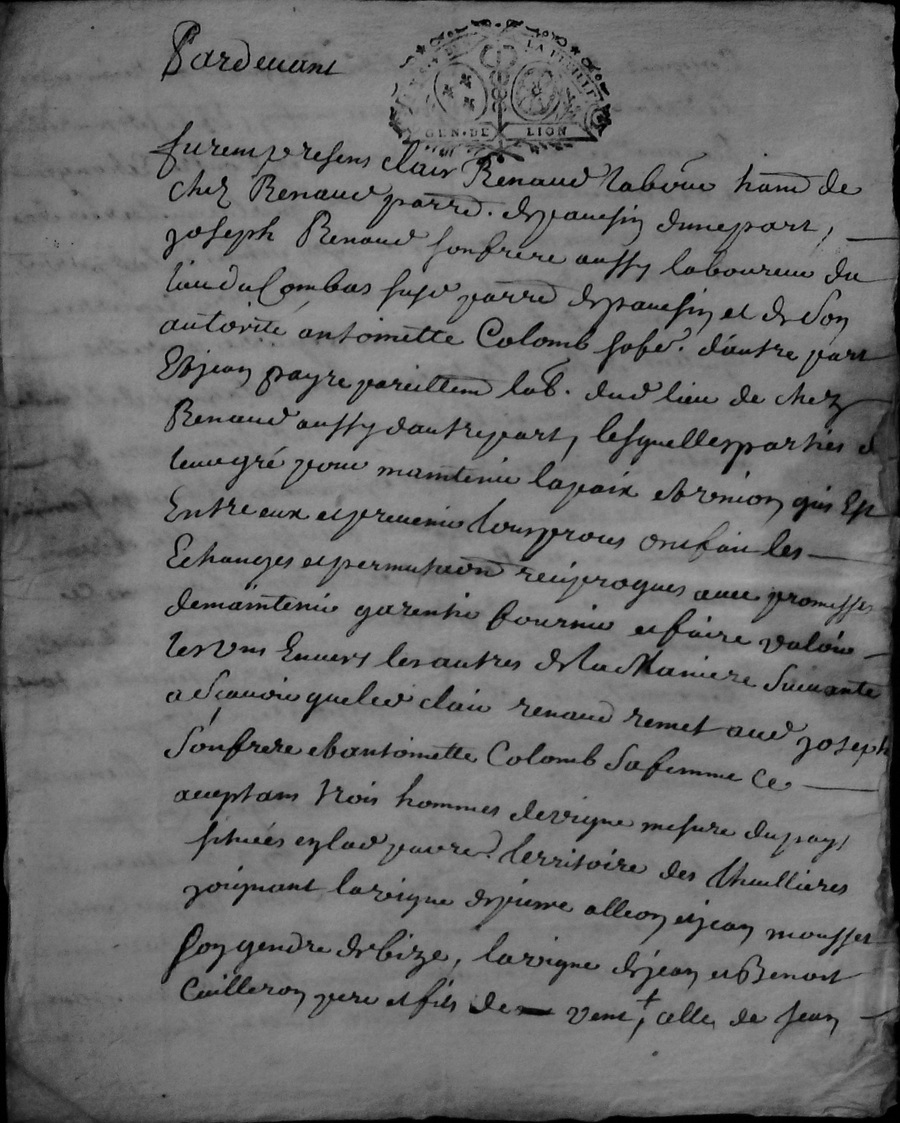 Pardevant
GEN. DE LION
furent presens clair Renaud laboure hant de
chez Renaud parre. de pavesin dune part,
joseph Renaud son frere aussy laboureur du
lieu du Combas susd parre de pavesin et de son
autorité antoinette Colomb sa fe. dautre part
Et jean payre pareillemt lab. dud lieu de chez
Renaud aussy dautre part, lesquelles parties d
leur gré pour maintenir la paix et union quis Est
Entre eux et prevenir tous proces ont fait les
Echanges et permutaon reciproques avec promesses
de maintenir garentir fournir et faire valoir
les uns Envers les autres de la Maniere suivante
a sçavoir que led clair renaud remet aud joseph
son frere et antoinette Colomb sa femme ce
acceptans trois hommes de vigne mesure du pays
situées en lad parre. territoire des
joignant la vigne de pierre alleon et jean mousset
son gendre de bize, la vigne de jean et Benoit
Cuilleron pere et fils de vent, celle de jean